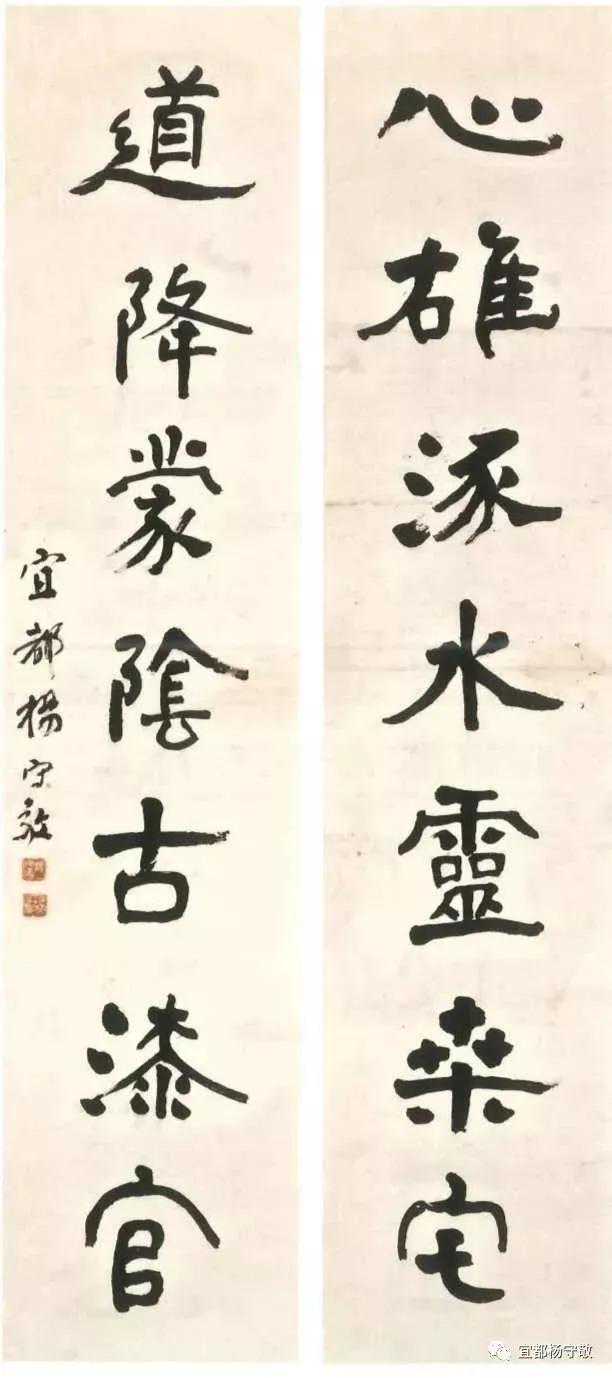 心雄涿水靈桒宅
道降蒙陰古漆官
宜都楊守敬
宜都杨守敬